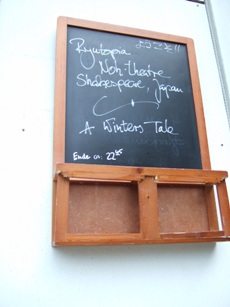 Ryutopia
Noh-theatre
Shakespeare, Japan
A Winters Tale
Ende ca. 22